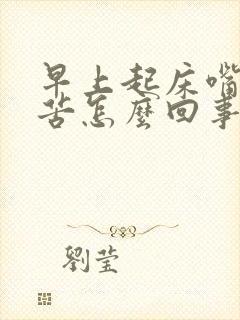 早上起床嘴
苦怎麼回事
劉莹